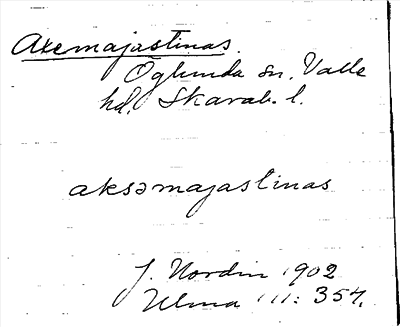 Axemajastinas.
Öglunda sn. Valle
hd. Skarab. l.
aksəmajastinas
J. Nordin 1902
Ulma 111: 354.